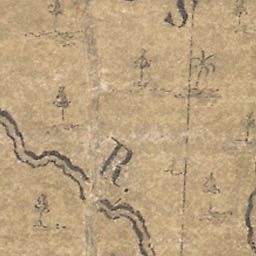 S
R.